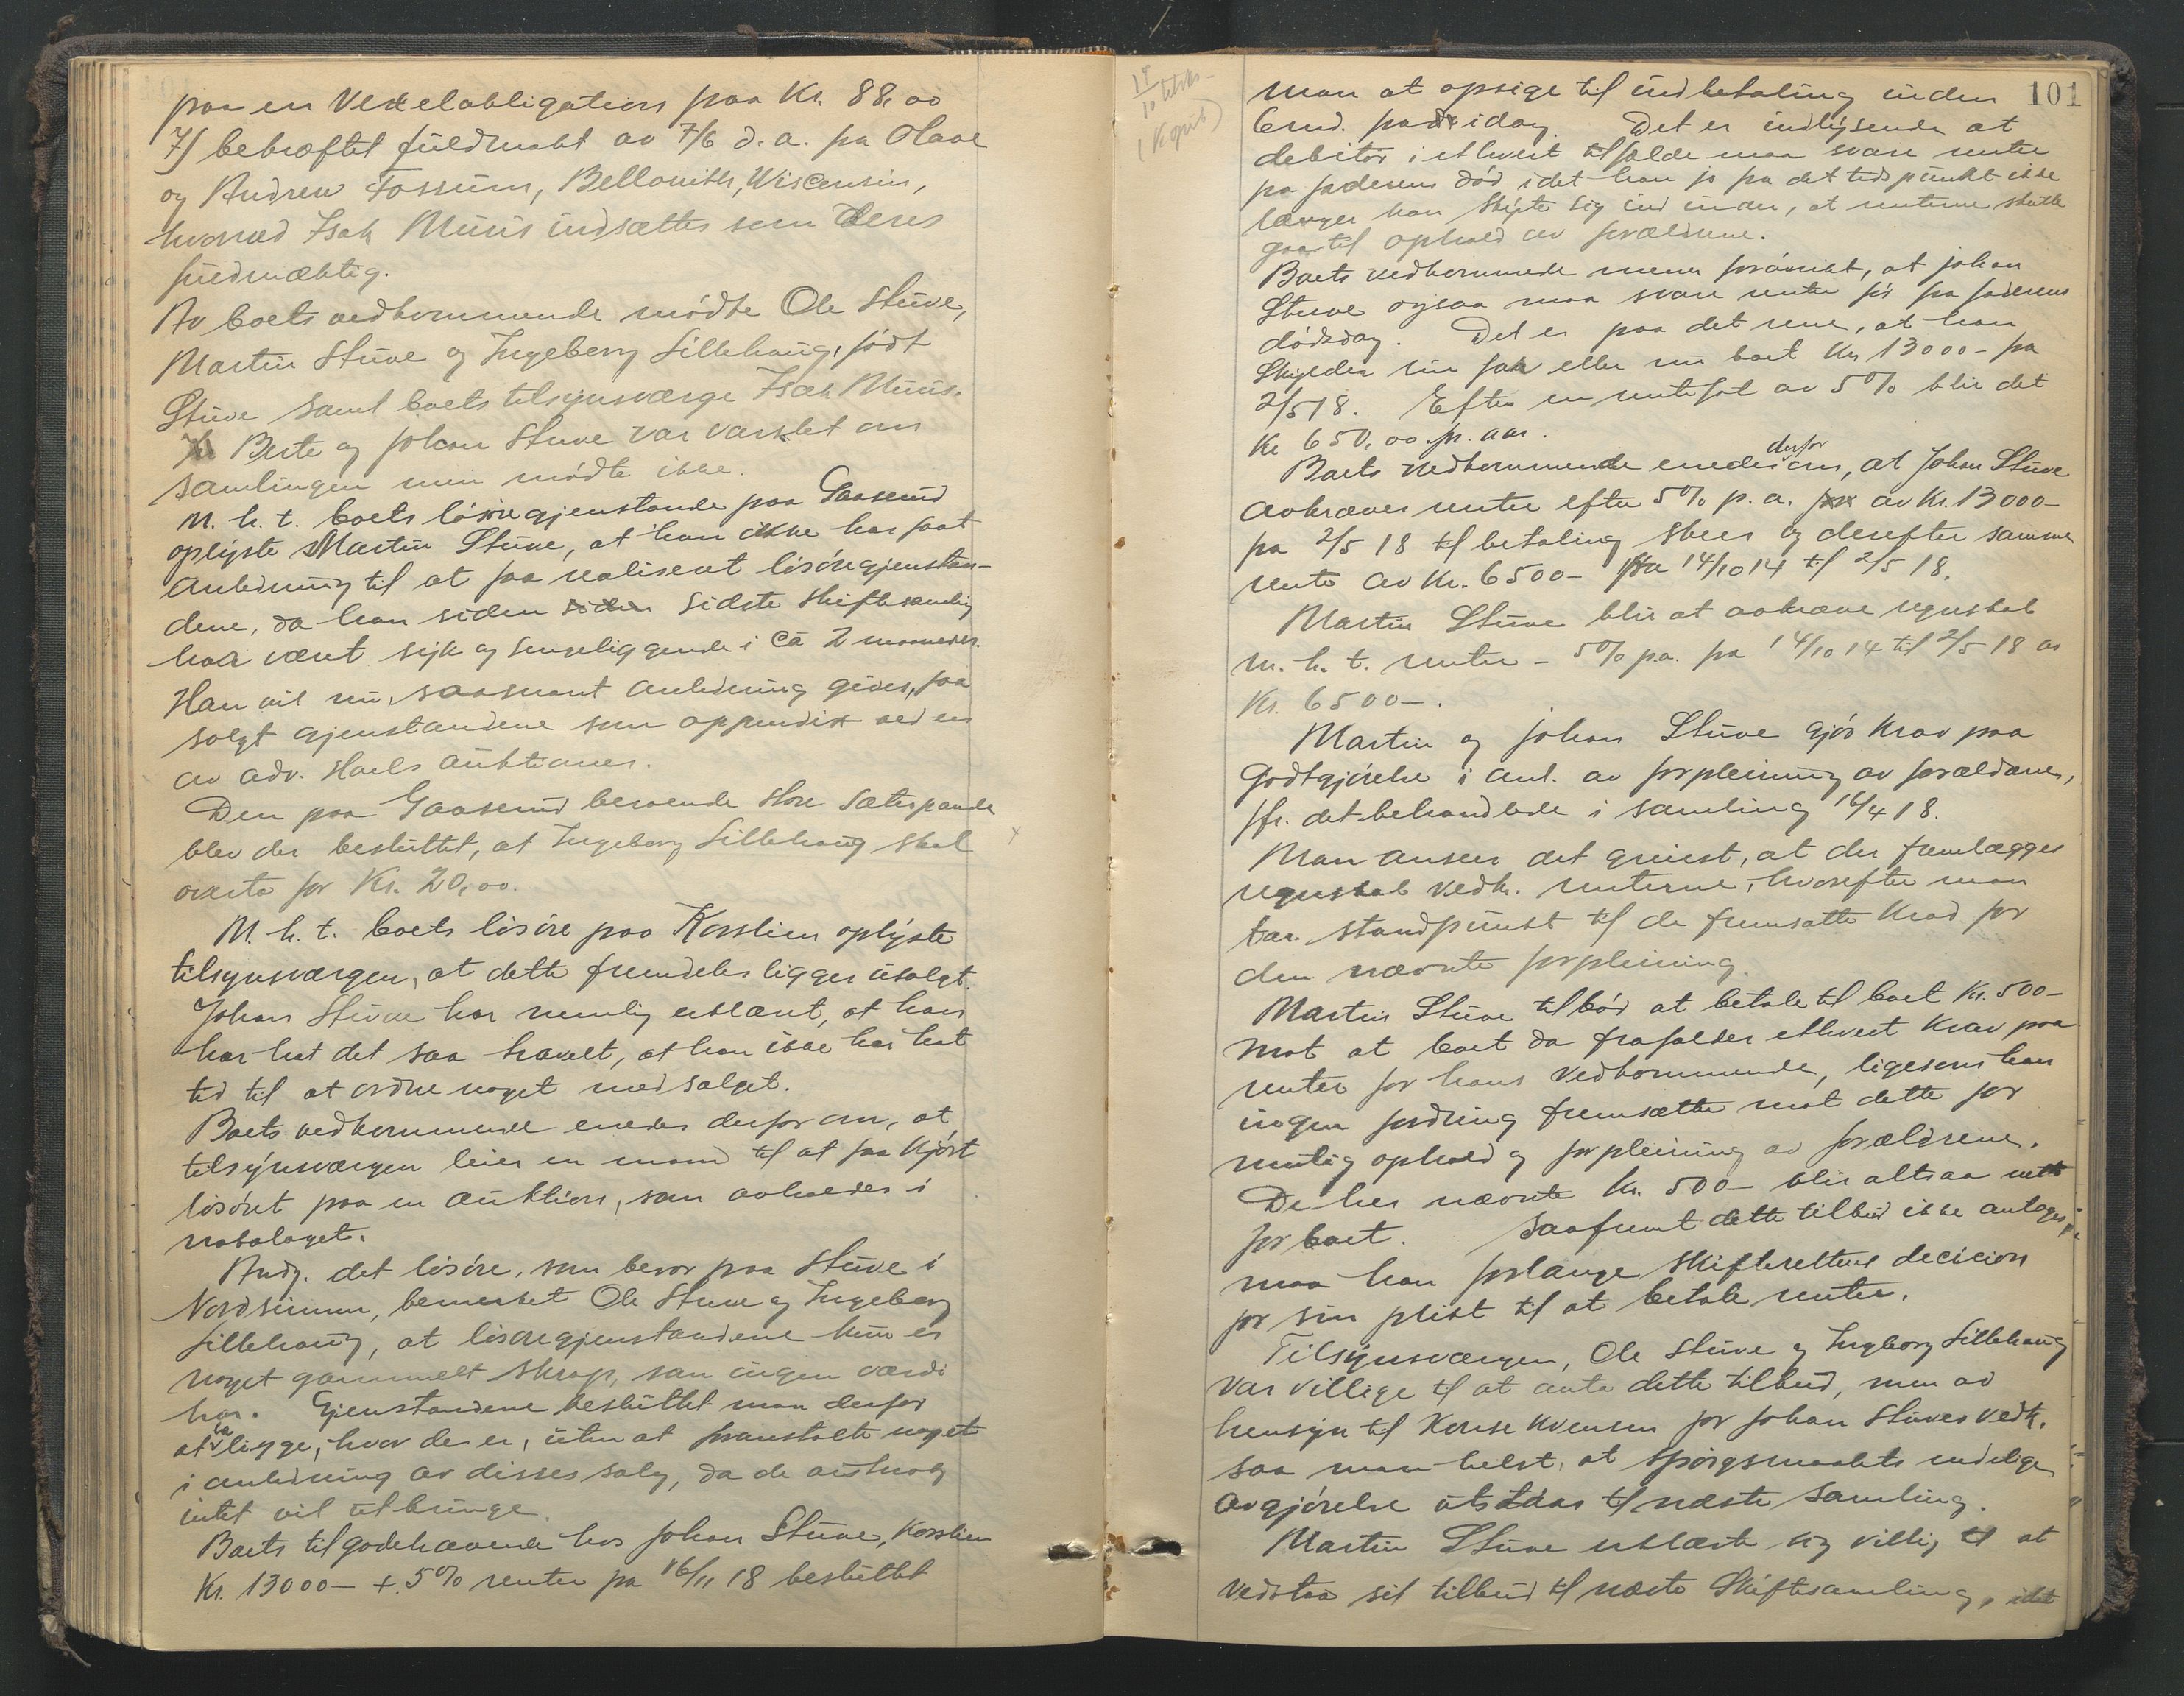 paa en Vexelobligation paa Kr. 88,00
7) bekræftet fuldmakt av 7/6 d. a. fra Olave
og Andrew Fossum, Wisconsin,
hvorved Isak Muus indsættes som deres
fuldmæktig.
Av boets vedkommende mødte Ole Stuve,
Martin Stuve og Ingeborg Lillehaug, født
Stuve samt boets tilsynsværge Isak Muus.
Berte og Johan Stuve var varslet om
samlingen men mødte ikke.
M. h. t. boets løsøregjenstande paa Gaaserud
oplyste Martin Stuve, at han ikke har faat
anledning til at faa realisert løsøregjenstan-
dene, da han siden siden sidste skiftesamling
har vært syk og sengeliggende i ca 2 maaneder.
Han vil nu, saasnart anledning gives, faa
solgt gjenstandene som appendix ved en
av adv. Hoels auktioner.
Den paa Gaaserud beroende store sæterpande
blev der besluttet, at Ingeborg Lillehaug skal
overta for Kr. 20,00.
M. h. t. boets løsøre paa Korslien oplyste
tilsynsværgen, at dette fremdeles ligger usolgt.
Johan Stuve har nemlig erklært, at han
har hat det saa travelt, at han ikke har hat
tid til at ordne noget med salget.
Boets vedkommende enedes derfor om, at
tilsynsværgen leier en mand til at faa kjørt
løsøret paa en auktion, som avholdes i
nabolaget.
Andg. det løsøre, som beror paa Stuve i
Nordsinnen, bemerket Ole Stuve og Ingeborg
Lillehaug, at løsøregjenstandene kun er
noget gammelt skrap, som ingen værdi
har. Gjenstandene besluttet man derfor
at la ligge, hvor de er, uten at foranstalte noget
i anledning av disses salg, da de antagelig
intet vil utbringe.
Boets tilgodehavende hos Johan Stuve, Korslien
Kr. 13000- + 5% renter fra 16/11 18 besluttet
101
man at opsige til indbetaling inden
6 md. fra idag. Det er indlysende at
debitor i ethvert tilfælde maa svare renter
fra faderens død idet han jo fra det tidspunkt ikke
længer kan skyte sig ind under, at renterne skulle
gaa til ophold av forældrene.
Boets vedkommende mener forøvrikt, at Johan
Stuve ogsaa maa svare renter før fra faderens
dødsdag. Det er paa det rene, at han
skylder sin far eller nu boet Kr. 13000- fra
2/5 18. Efter en rentefot av 5% blir det
Kr 650,00 pr. aar.
Boets vedkommende enedes derfor om, at Johan Stuve
avkræves renter efter 5% p. a. av Kr. 13000-
fra 2/5 18 til betaling skeer og derefter samme
rente av Kr. 6500- fra 14/10 14 til 2/5 18.
Martin Stuve blir at avkræve regnskab
m. h. t. renter - 5% p.a. fra 14/10 14 til 2/5 18 av
Kr. 6500-.
Martin og Johan Stuve gjør krav paa
godtgjørelse i anl. av forpleining av forældrene,
jfr. det behandlede i samling 16/4 18.
Man anseer det greiest, at der fremlægges
regnskab vedk. renterne, hvorefter man
tar standpunkt til de fremsatte krav for
den nævnte forpleining.
Martin Stuve tilbød at betale til boet Kr. 500-
mot at boet da frafalder ethvert krav paa
renter for hans vedkommende, ligesom han
ingen fordring fremsætter mot dette for
mulig ophold og forpleining av forældrene.
De her nævnte Kr. 500- blir altsaa netto
for boet. Saafremt dette tilbud ikke antages,
maa han forlange skifterettens decision
for sin plikt til at betale renter.
Tilsynsværgen, Ole Stuve og Ingeborg Lillehaug
var villige til at anta dette tilbud, men av
hensyn til konsekvensen for Johan Stuves vedk.
saa man helst, at spørgsmaalets endelige
avgjørelse utstaar til næste samling.
Martin Stuve erklærte sig villig til at
vedstaa sit tilbud til næste skiftesamling, idet